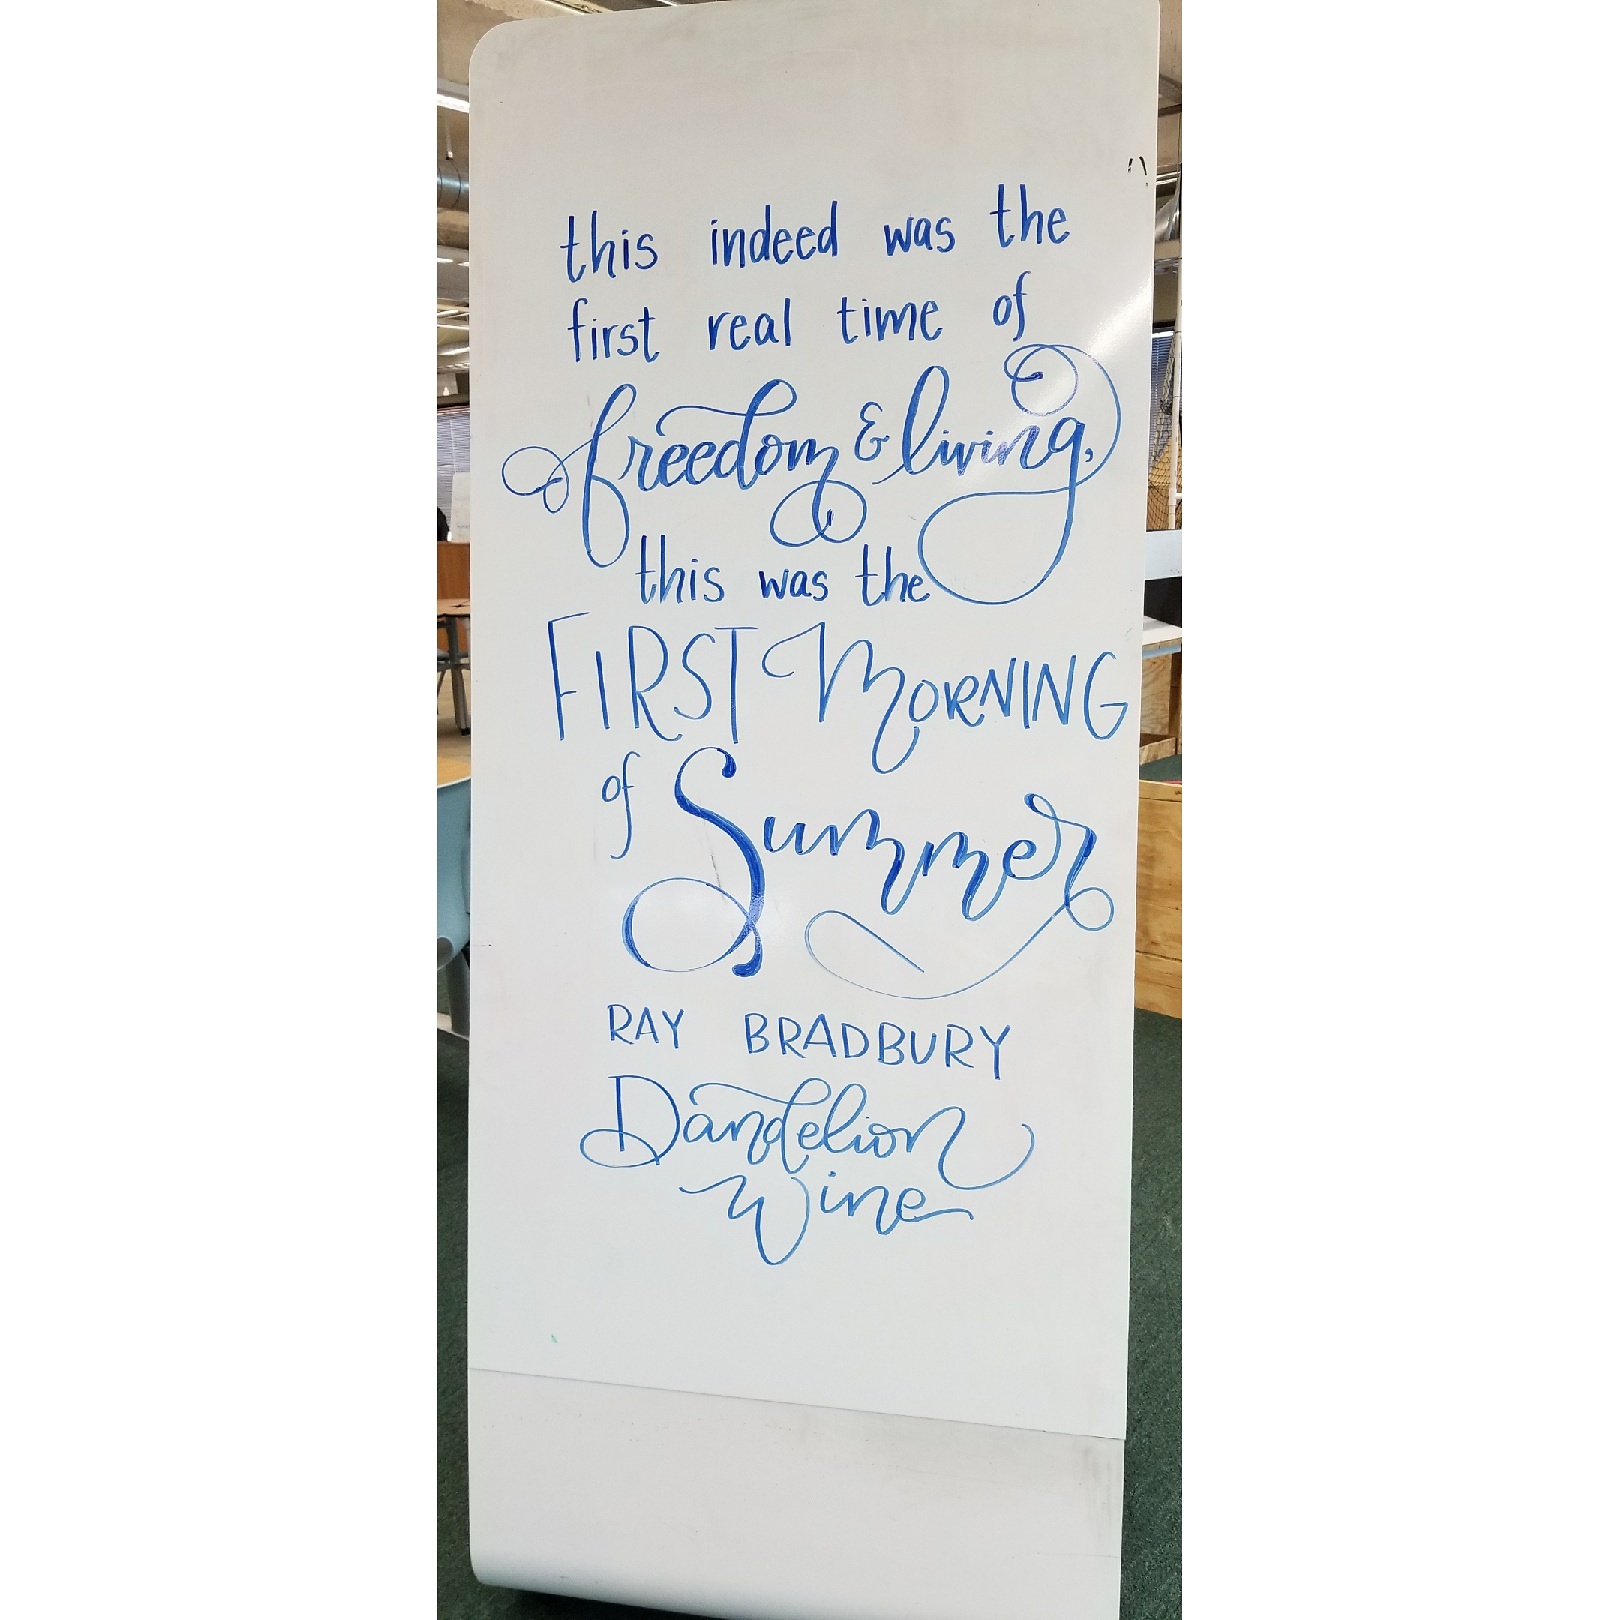 this indeed was the
first real time of
freedom & living,
this was the
FIRST MORNING
of Summer
RAY BRADBURY
Dandelion
Wine